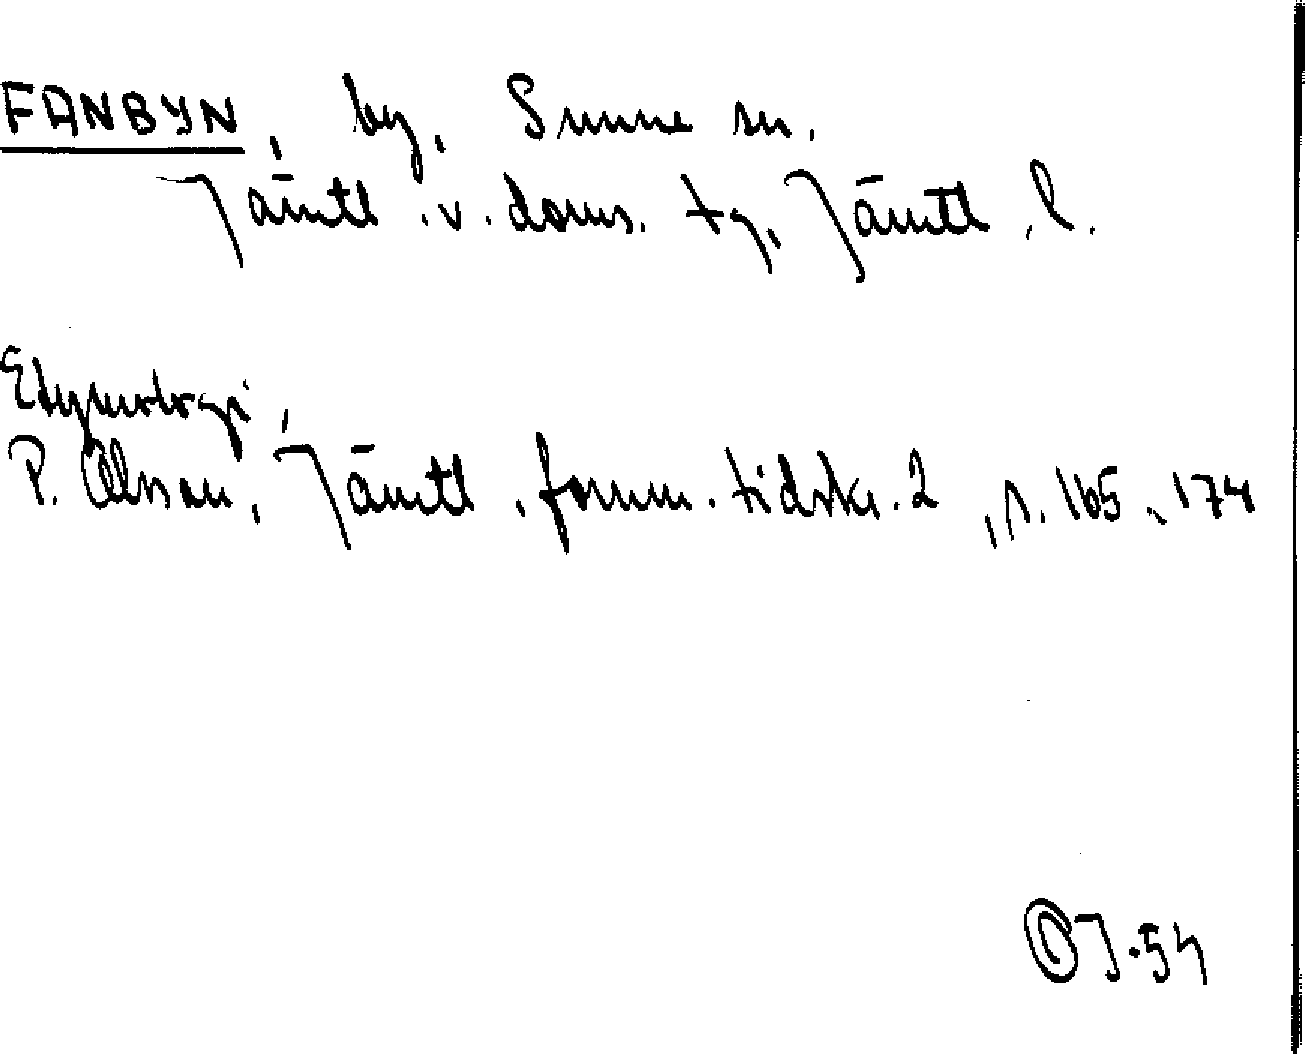 FANBYN, by, Sunne sn.
Jämtl. v. doms. tg, Jämtl. l.
Etymologi,
P. Olsson, Jämtl. fornm. tidskr. 2, s. 165, 174
OJ.54